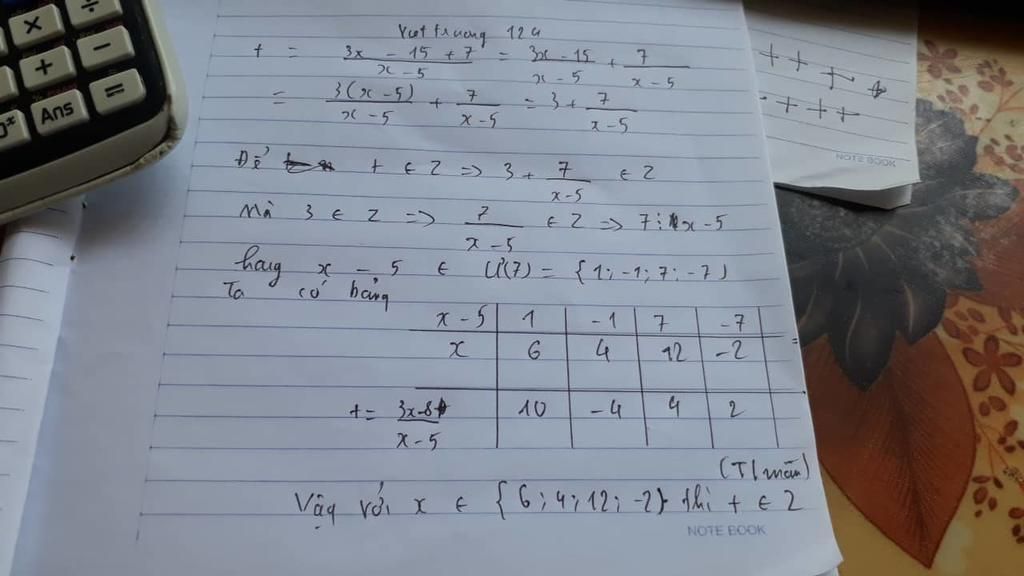 Việt trường 12a
t = (3x - 15 + 7)/(x - 5) = (3x - 15)/(x - 5) + 7/(x - 5)
= (3(x - 5))/(x - 5) + 7/(x - 5) = 3 + 7/(x - 5)
Để t ∈ Z => 3 + 7/(x - 5) ∈ Z
Mà 3 ∈ Z => 7/(x - 5) ∈ Z => 7 ⋮ x - 5
hay x - 5 ∈ Ư(7) = {1; -1; 7; -7}
Ta có bảng
x - 5 | 1 | -1 | 7 | -7
x | 6 | 4 | 12 | -2
t = (3x - 8)/(x - 5) | 10 | -4 | 4 | 2
(T/mãn)
Vậy với x ∈ {6; 4; 12; -2} thì t ∈ Z
NOTE BOOK
NOTE BOOK
x
-
+
Ans
=